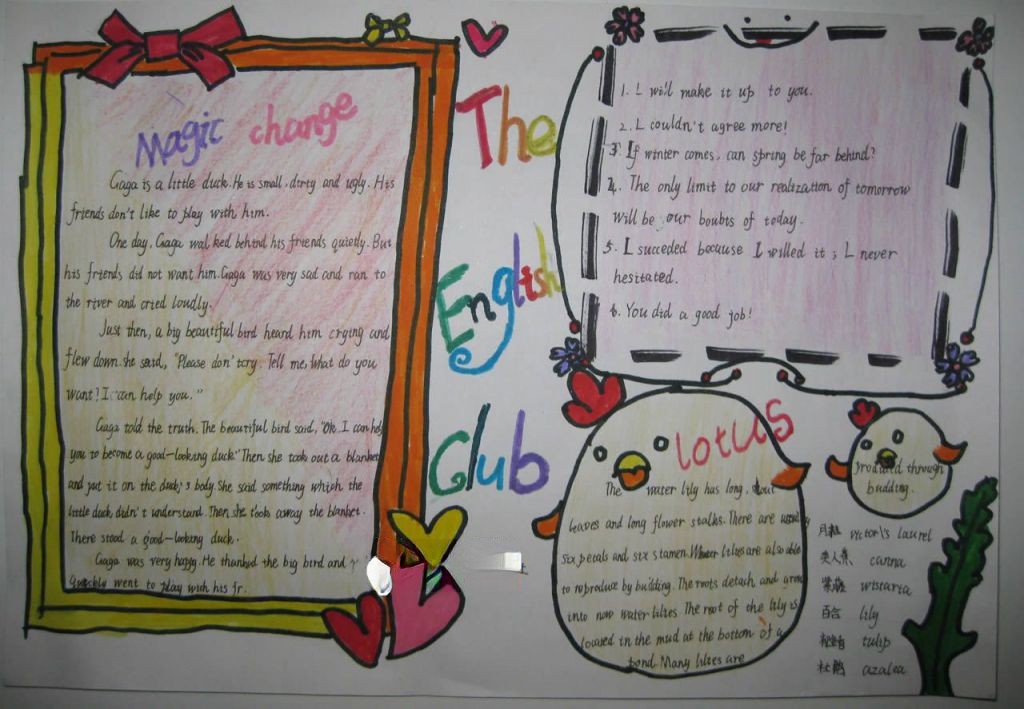 Magic change
Gaga is a little duck. He is small, dirty and ugly. His
friends don't like to play with him.
One day, Gaga walked behind his friends quietly. But
his friends did not want him. Gaga was very sad and ran to
the river and cried loudly.
Just then, a big beautiful bird heard him crying and
flew down. She said, "Please don't cry. Tell me, what do you
want? I can help you."
Gaga told the truth. The beautiful bird said, "Ok, I can help
you to become a good-looking duck." Then she took out a blanket
and put it on the duck's body. She said something which the
little duck didn't understand. Then she took away the blanket.
There stood a good-looking duck.
Gaga was very happy. He thanked the big bird and
quickly went to play with his fr.
The
English
Club
1. I will make it up to you.
2. I couldn't agree more!
3. If winter comes, can spring be far behind?
4. The only limit to our realization of tomorrow
will be our boubts of today.
5. I succeded because I willed it; I never
hesitated.
6. You did a good job!
lotus
The water lily has long, stout
leaves and long flower stalks. There are usually
six petals and six stamen. Water lilies are also able
to reproduce by budding. The roots detach and grow
into now water lilies. The root of the lily is
located in the mud at the bottom of a
pond. Many lilies are
produced through
budding.
月桂 victor's laurel
美人蕉 canna
紫藤 wistaria
百合 lily
郁金香 tulip
杜鹃 azalea